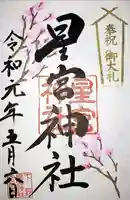 奉祝 御大礼
星宮神社
令和元年五月六日